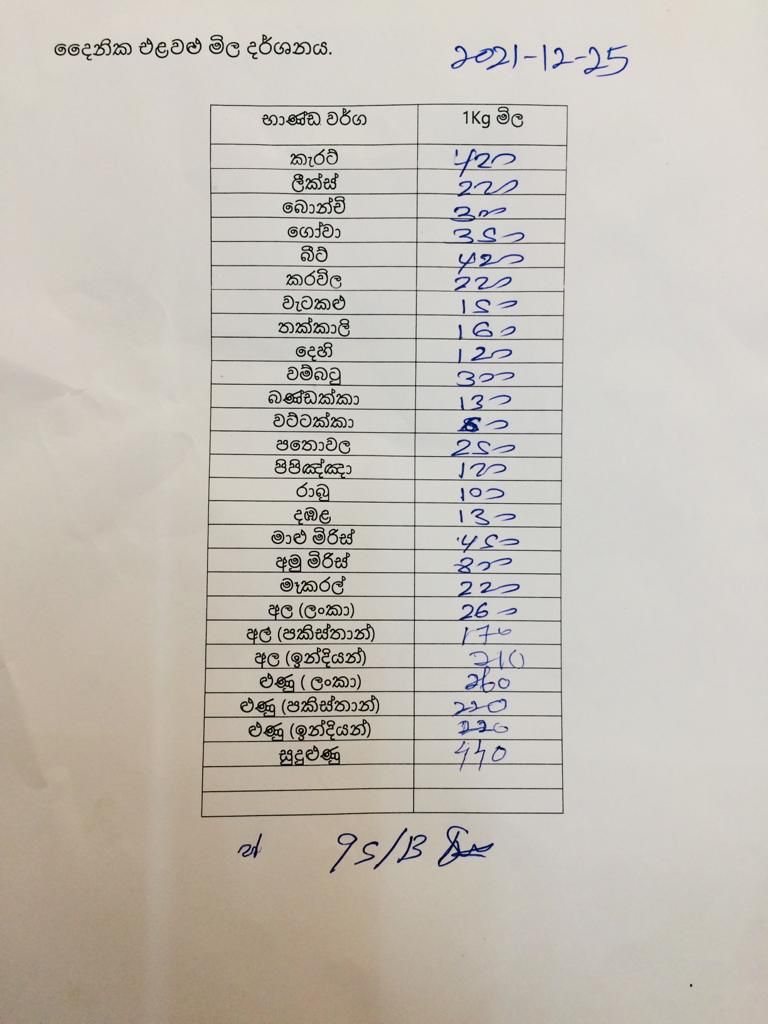 දෛනික එළවළු මිල දර්ශනය. 2021-12-25
භාණ්ඩ වර්ග 1Kg මිල
කැරට් 420
ලීක්ස් 220
බොන්චි 300
ගෝවා 350
බීට් 420
කරවිල 220
වැටකළු 150
තක්කාලි 160
දෙහි 120
වම්බටු 300
බණ්ඩක්කා 130
වට්ටක්කා
පතොවල 250
පිපිඤ්ඤා 120
රාබු 100
දඹළ 130
මාළු මිරිස් 450
අමු මිරිස් 800
මෑකරල් 220
අල (ලංකා) 260
අල (පකිස්තාන්) 170
අල (ඉන්දියන්) 210
ළුණු ( ලංකා) 260
ළුණු (පකිස්තාන්) 220
ළුණු (ඉන්දියන්) 220
සුදුළුණු 440
95/B